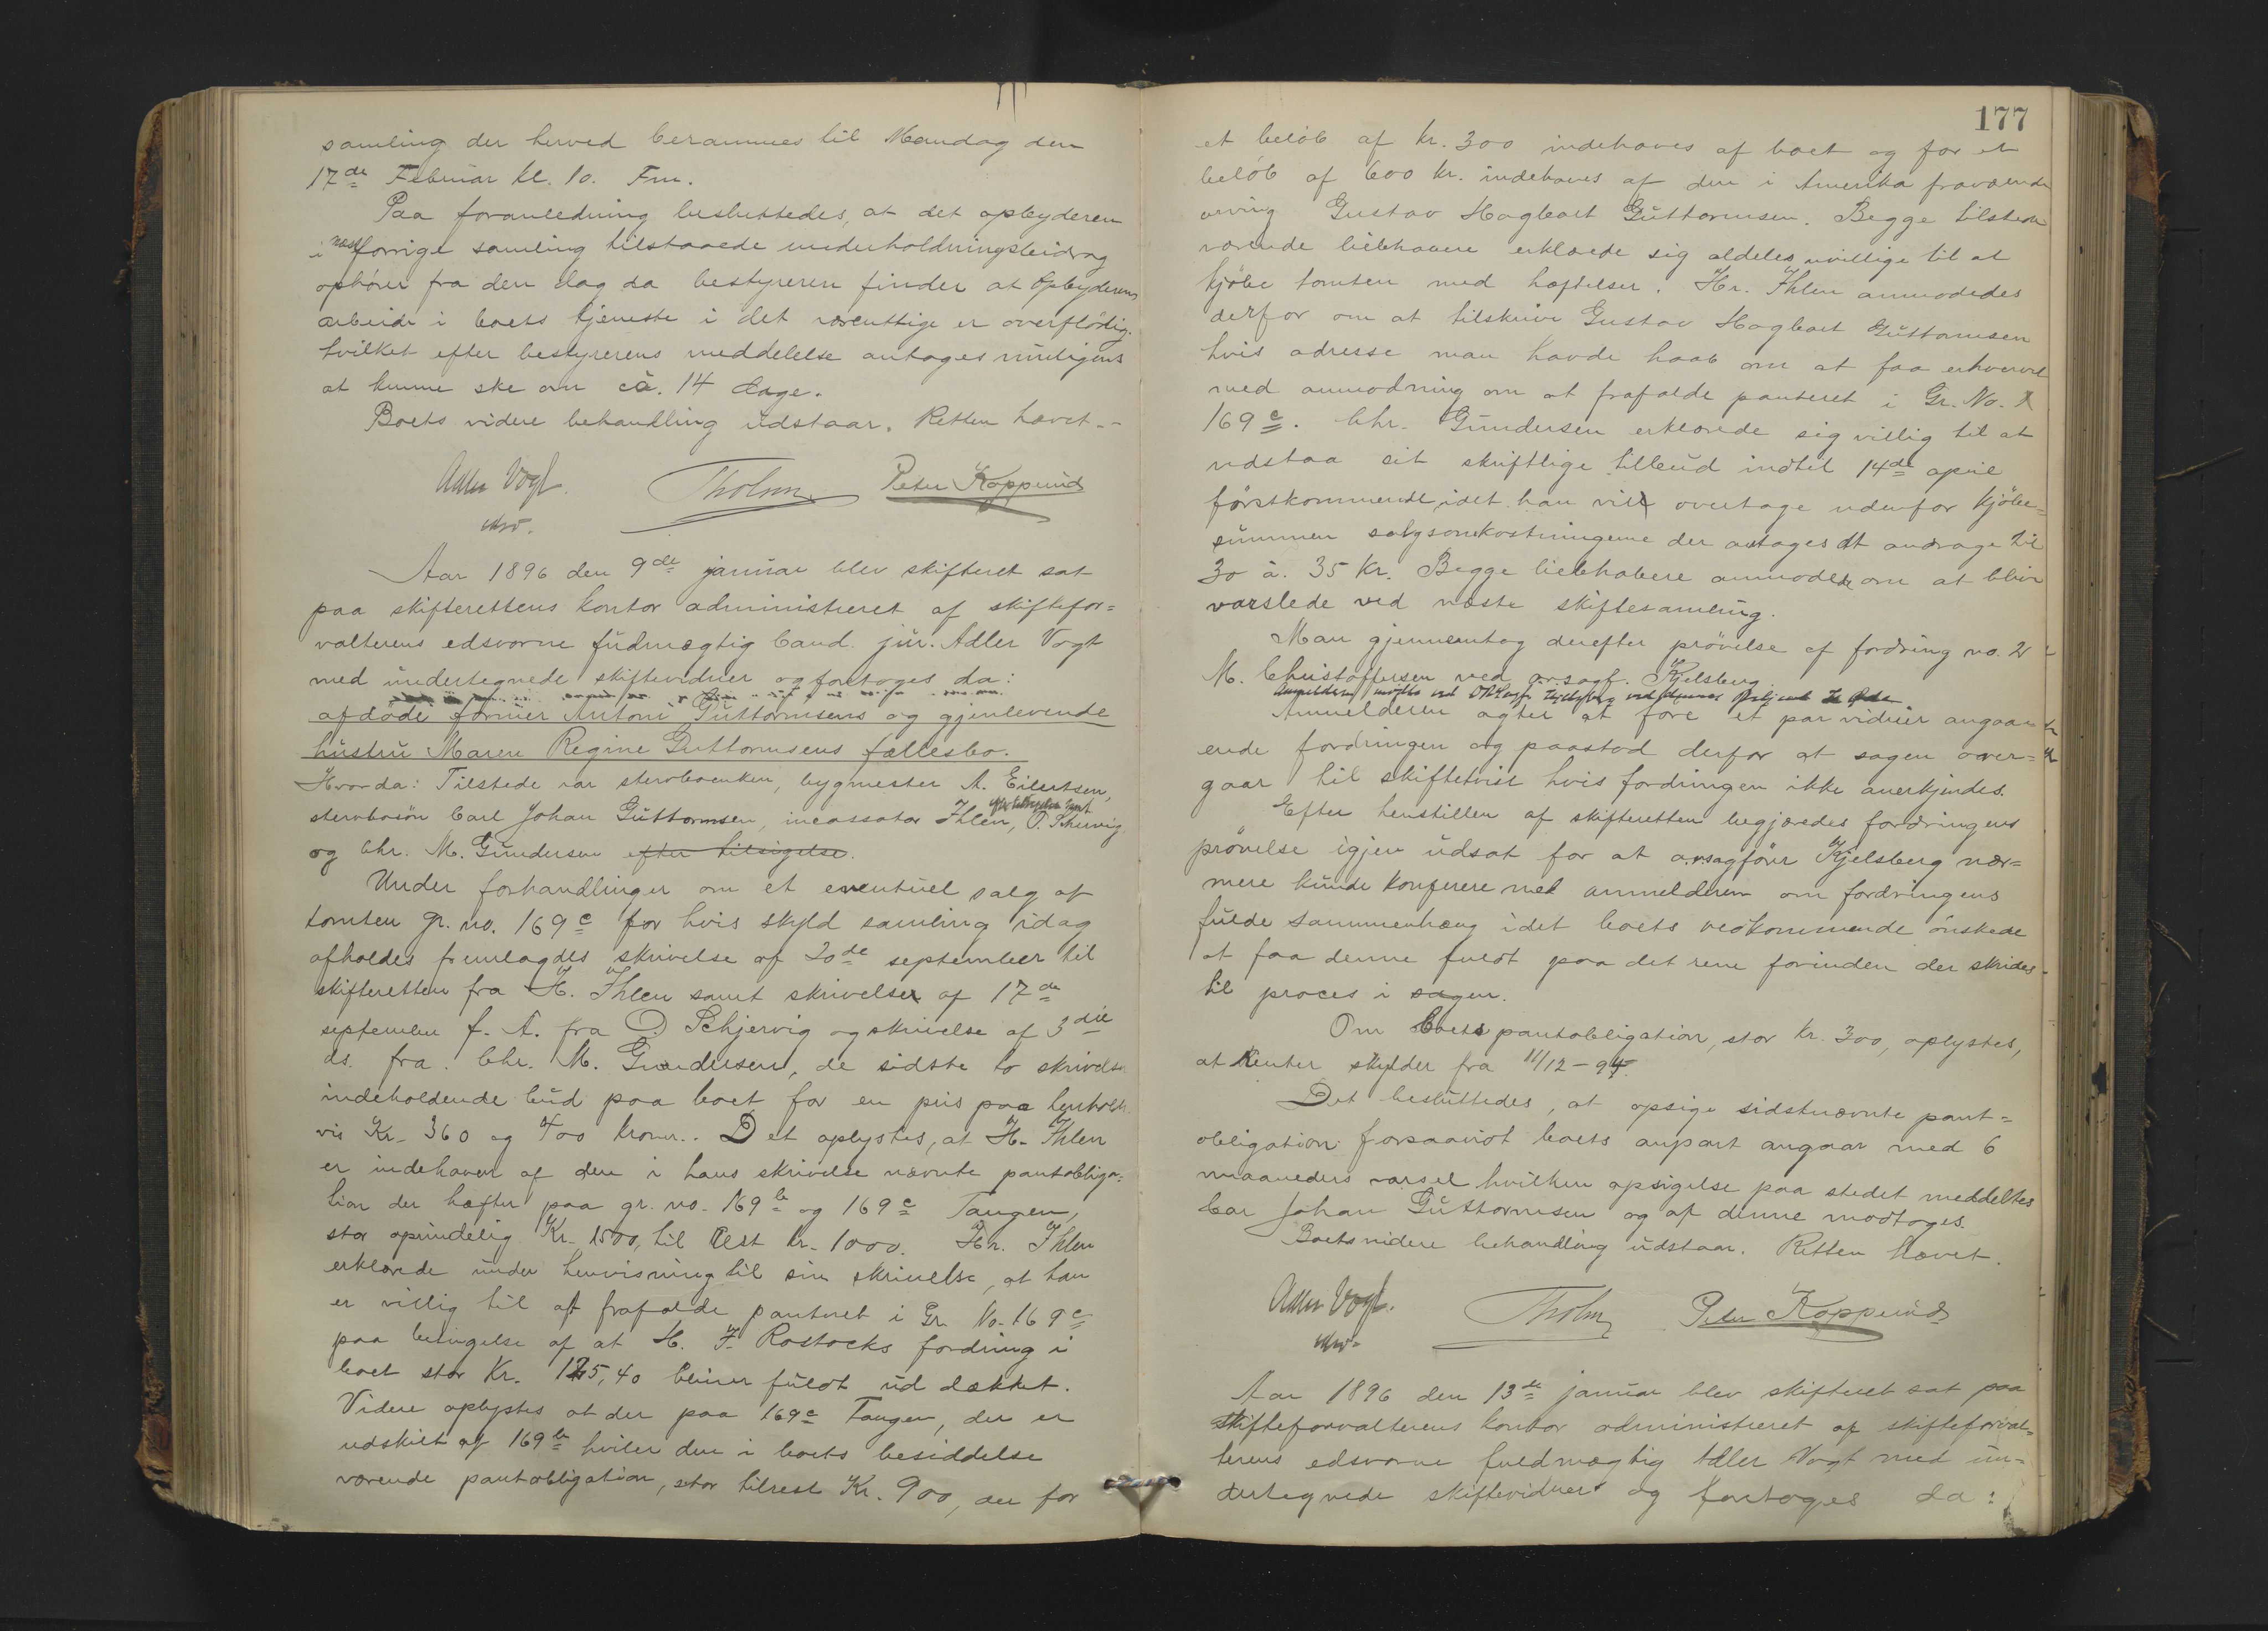 samling der herved berammes til Mandag den
17de Februar kl. 10. Fm.
Paa foranledning besluttedes, at det opbyderen
i næstforrige samling tilstaaede underholdningsbidrag
ophører fra den dag da bestyreren finder at Opbyderens
arbeide i boets tjeneste i det væsentlige er overflødig.
hvilket efter bestyrerens meddelelse antages rimeligvis
at kunne ske om ca. 14 dage.
Boets videre behandling udstaar. Retten hævet.-
Adler Vogt. Tholm Peter Koppeud
Aar 1896 den 9de januar blev skifteret sat
paa skifterettens kontor administreret af skiftefor=
valterens edsvorne fudmægtig Cand. jur. Adler Vogt
med undertegnede skiftevidner og foretoges da:
afdøde former Antoni Guttormsens og gjenlevende
hustru Maren Regine Guttormsens fællesbo.
Hvorda: Tilstede var stervboenken, bygmester A. Eilertsen,
stervbosøn Carl Johan Guttormsen, incassator Ihlen, O. Schervig
og Chr. M. Gundersen efter tilsigelse.
Under forhandlinger om et eventuel salg af
tomten gr. no. 169c for hvis skyld samling idag
afholdes fremlagdes skrivelse af 20de september til
skifteretten fra H. Ihlen samt skrivelse af 17de
september f. A. fra O. Schjervig og skrivelse af 3die
ds. fra Chr. M. Gundersen, de sidste to skrivelser
indeholdende bud paa boet for en pris paa henholds
vis Kr. 360 og 400 kroner.. Det oplystes, at H. Ihlen
er indehaver af den i hans skrivelse nævnte pantobliga=
tion der hæfter paa gr. no. 169b og 169c Tangen,
stor oprindelig Kr. 1500, til Rest kr. 1000. Hr. Ihlen
erklærede under henvisning til sin skrivelse, at han
er villig til at frafalde panteret i Gr. No. 169c
paa betingelse af at H. F. Rostocks fordring i
boet stor Kr. 125,40 bliver fuldt ud dækket.
Videre oplystes at der paa 169c Tangen, der er
udskilt af 169b hviler den i boets besiddelse
værende pantobligation, stor tilrest Kr. 900, der for
177
et beløb af kr. 300 indehaves af boet og for et
beløb af 600 kr. indehaves af den i Amerika fraværende
arving Gustav Hagbart Guttormsen. Begge tilstede
værende liebhavere erklærede sig aldeles uvillige til at
kjøbe tomten med hæftelser. Hr. Ihlen anmodedes
derfor om at tilskrive Gustav Hagbart Guttormsen
hvis adresse man havde haab om at faa erhvervet
med anmodning om at frafalde panteret i Gr. No.
169c. Chr. Gundersen erklærede sig villig til at
udstaa sit skriftlige tilbud indtil 14de april
førstkommende, idet han vil overtage udenfor kjøbe=
summen salgsomkostningerne der antages at andrage til
30 à. 35 kr. Begge liebhabere anmodede om at blive
varslede ved næste skiftesamling.
Man gjennemtog derefter prøvelse af fordring no. 2
M. Christoffersen ved o.r.sagf. Kjelsberg.
Anmelderen agter at føre et par vidner angaa=
ende fordringen og paastod derfor at sagen over=
gaar til skiftetvist hvis fordringen ikke anerkjendes.
Efter henstillen af skifteretten begjæredes fordringens
prøvelse igjen udsat for at o.r.sagfører Kjelsberg nær=
mere kunde konferere med anmelderen om fordringens
fulde sammenhæng idet boets vedkommende ønskede
at faa denne fuldt paa det rene forinden der skrides
til proces i sagen.
Om boets pantobligation, stor kr. 300, oplystes,
at Renter skylder fra 11/12 - 94.
Det besluttedes, at opsige sidstnævnte pant=
obligation forsaavidt boets anpart angaar med 6
maaneders varsel hvilken opsigelse paa stedet meddeltes
Car Johan Guttormsen og af denne modtoges.
Boets videre behandling udstaar. Retten hævet.
Adler Vogt. Tholm Peter Koppeud
Aar 1896 den 13de januar blev skifteret sat paa
Skifteforvalterens kontor administreret af skifteforval=
terens edsvorne fuldmægtig Adler Vogt med un=
dertegnede skiftevidner og foretoges da: